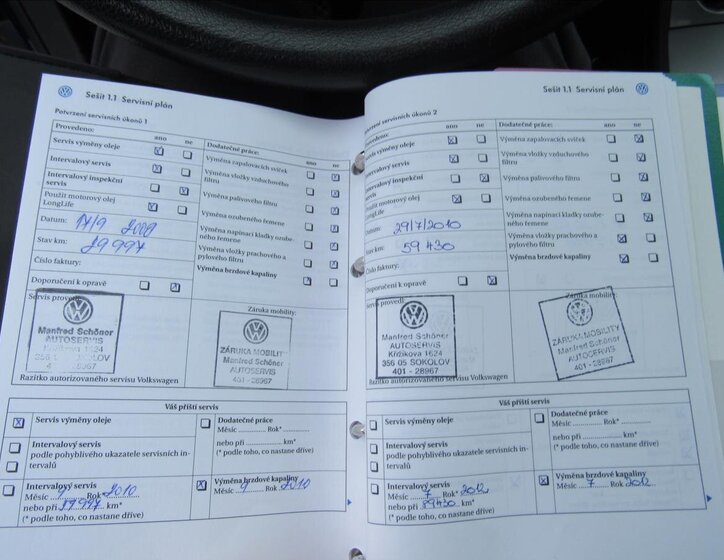 Sešit 1.1 Servisní plán
Potvrzení servisních úkonů 1
Provedeno: ano ne
Servis výměny oleje
Intervalový servis
Intervalový inspekční
servis
Použit motorový olej
LongLife
Datum: 17/9 2009
Stav km: 29 997
Číslo faktury:
Doporučení k opravě
Dodatečné práce: ano ne
Výměna zapalovacích svíček
Výměna vložky vzduchového
filtru
Výměna palivového filtru
Výměna ozubeného řemene
Výměna napínací kladky ozube-
ného řemene
Výměna vložky prachového a
pylového filtru
Výměna brzdové kapaliny
Servis provedl:
Manfred Schöner
AUTOSERVIS
Křižíkova 1624
356 01 SOKOLOV
Záruka mobility:
ZÁRUKA MOBILITY
Manfred Schöner
AUTOSERVIS
401 - 28967
Razítko autorizovaného servisu Volkswagen
Váš příští servis
Servis výměny oleje
Intervalový servis
podle pohyblivého ukazatele servisních in-
tervalů
Intervalový servis
Měsíc 9 Rok 2010
nebo při 59997 km*
(* podle toho, co nastane dříve)
Dodatečné práce
Měsíc Rok*
nebo při km*
(* podle toho, co nastane dříve)
Výměna brzdové kapaliny
Měsíc 9 Rok 2010
Sešit 1.1 Servisní plán
Potvrzení servisních úkonů 2
Provedeno: ano ne
Servis výměny oleje
Intervalový servis
Intervalový inspekční
servis
Použit motorový olej
LongLife
Datum: 29/7/2010
Stav km: 59 430
Číslo faktury:
Doporučení k opravě
Dodatečné práce: ano ne
Výměna zapalovacích svíček
Výměna vložky vzduchového
filtru
Výměna palivového filtru
Výměna ozubeného řemene
Výměna napínací kladky ozube-
ného řemene
Výměna vložky prachového a
pylového filtru
Výměna brzdové kapaliny
Servis provedl:
Manfred Schöner
AUTOSERVIS
Křižíkova 1624
356 05 SOKOLOV
401 - 28967
Záruka mobility:
ZÁRUKA MOBILITY
Manfred Schöner
AUTOSERVIS
401 - 28967
Razítko autorizovaného servisu Volkswagen
Váš příští servis
Servis výměny oleje
Intervalový servis
podle pohyblivého ukazatele servisních in-
tervalů
Intervalový servis
Měsíc 7 Rok* 2012
nebo při 89430 km*
(* podle toho, co nastane dříve)
Dodatečné práce
Měsíc Rok*
nebo při km*
(* podle toho, co nastane dříve)
Výměna brzdové kapaliny
Měsíc 7 Rok 2012